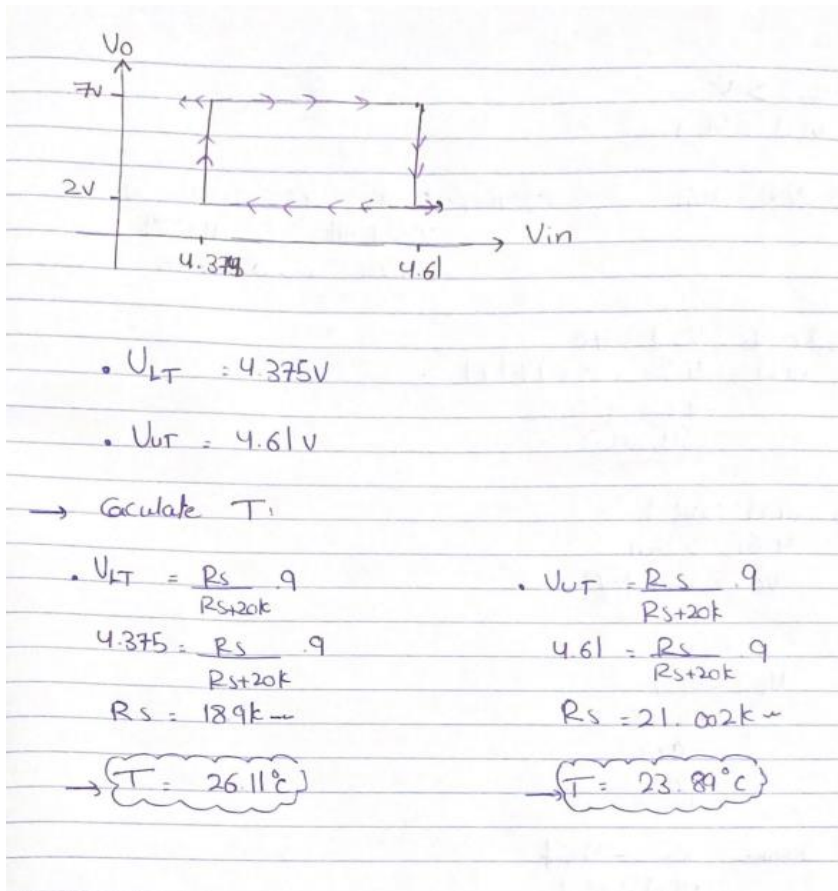 Vo
7v
2v
Vin
4.375
4.61
• VLT = 4.375V
• VUT = 4.61 V
→ Caculate T:
• VLT = Rs / Rs+20k .9
4.375 = Rs / Rs+20k .9
Rs = 189k
→ T = 26.11°C
• VUT = Rs / Rs+20k .9
4.61 = Rs / Rs+20k .9
Rs = 21.002k
→ T = 23.89°C